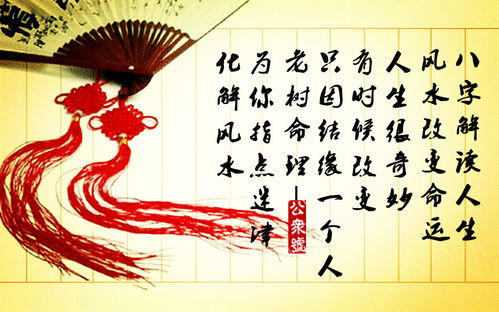 八字解读人生
风水改变命运
人生很奇妙
有时候改变
只因结缘一个人
老树命理—公眾號
为你指点迷津
化解风水